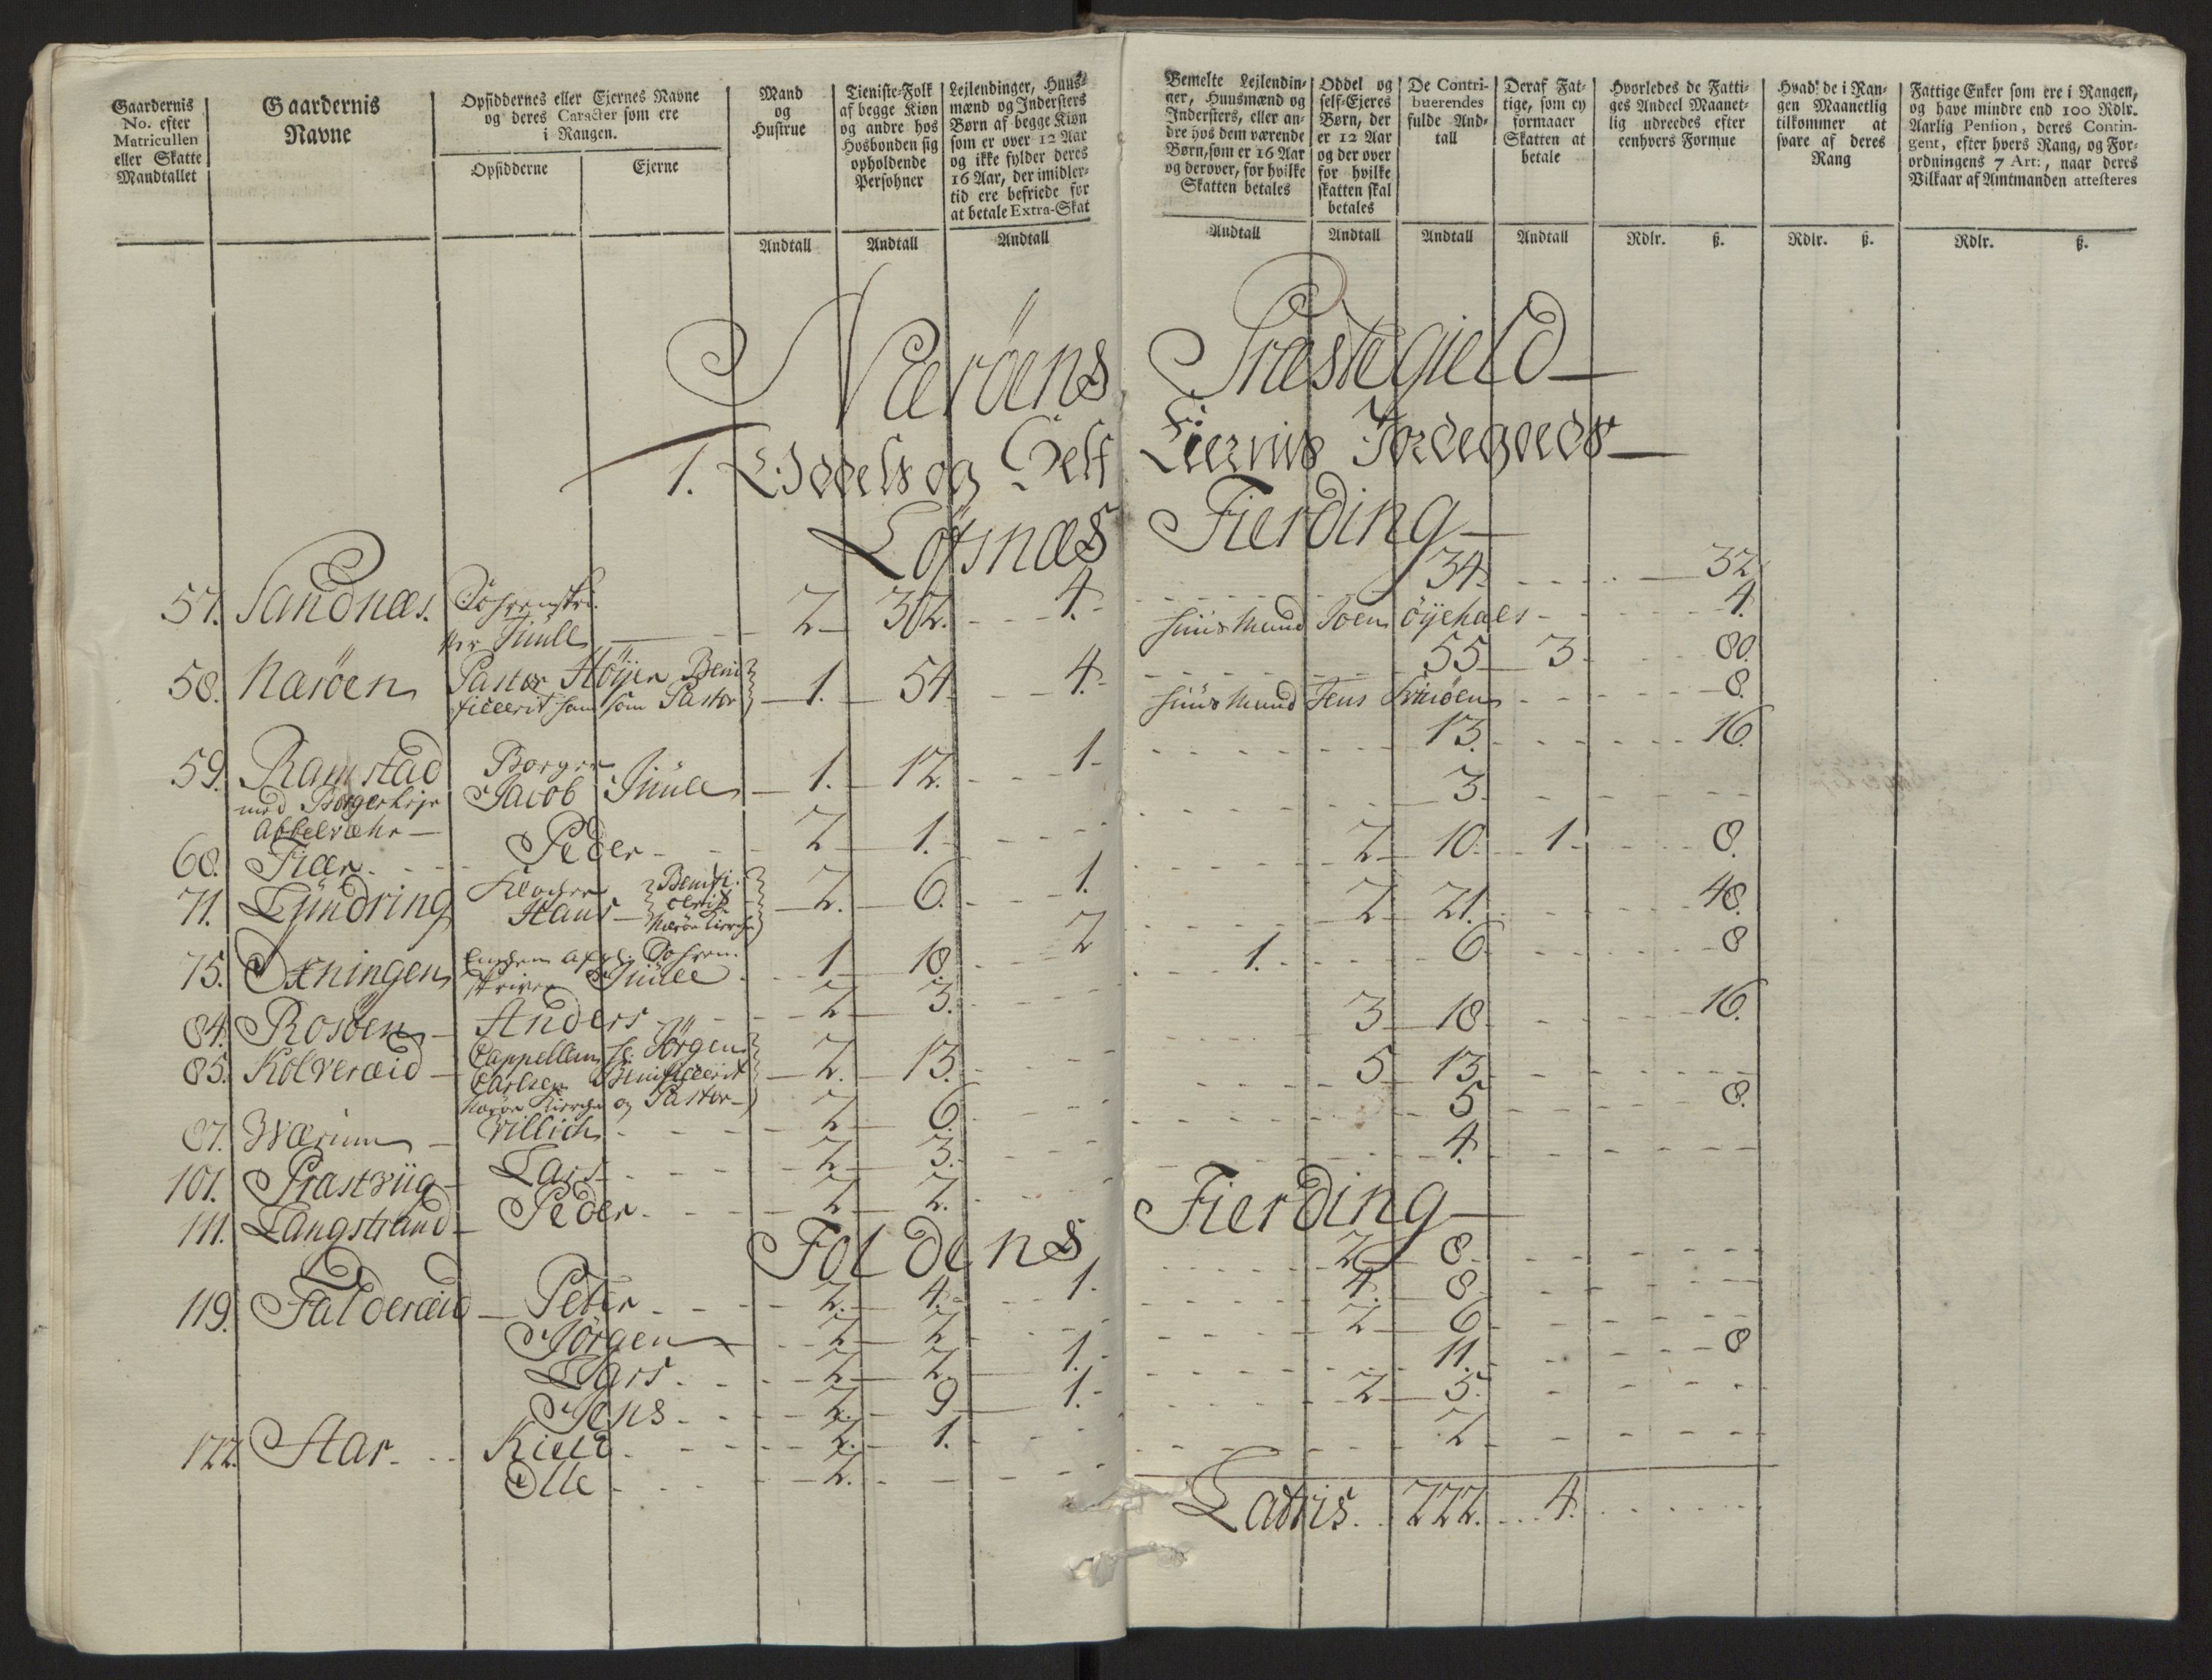 Gaardernis No. efter Matricullen eller Skatte Mandtallet
Gaardernis Navne
Opsiddernes eller Ejernes Navne og deres Caracter som ere i Rangen.
Opsidderne
Ejerne
Mand og Hustrue
Tieniste-Folk af begge Kiøn og andre hos Hosbonden sig opholdende Persohner
Lejlendinger, Huusmænd og Indersters Børn af begge Kiøn som er over 12 Aar og ikke fylder deres 16 Aar, der imidlertid ere befriede for at betale Extra-Skat
Bemelte Lejlendinger, Huusmænd og Indersters, eller andre hos dem værende Børn, som er 16 Aar og derover, for hvilke Skatten betales
Oddel og self-Ejeres Børn, der er 12 Aar og der over for hvilke skatten skal betales
De Contribuerendes fulde Andtall
Deraf Fattige, som ey formaaer Skatten at betale
Hvorledes de Fattiges Andeel Maanetlig udreedes efter eenhvers Formue
Hvad de i Rangen Maanetlig tilkommer at svare af deres Rang
Fattige Enker som ere i Rangen, og have mindre end 100 Rdlr. Aarlig Pension, deres Contingent, efter hvers Rang, og Forordningens 7 Art:, naar deres Vilkaar af Amtmanden attesteres
Andtall Andtall Andtall Andtall Andtall Andtall Andtall Rdlr. ß. Rdlr. ß. Rdlr. ß.
Nærøens Præstegield
1. Oddels og Self Eiernis Jordegoeds
Løfsnæs Fierding
57. Sandnæs. Sohrenskri
ver Juull 2 32. 4. 34. 32
Huusmand Joen Öyehaes 4
58. Nærøen Pastor Höyer Beni
ficeerit som Pastor 1. 54 4. 55 3 80.
Huusmand Jens 8.
59. Ramstad Borger
med Borgerleje Jacob Juull 1. 12. 1 13. 16.
Abbelvæhr
60. Fiær Peder 2 1. 3.
71. Lundring Klocker Benifi
Hans cerit 2. 6. 1. 2 10. 1. 8.
Nærøe Kirche
75. Oxningen Sohren
skriver Juull 1 18. 2 2 21. 48.
84. Rosøen Anders 2 3. 1. 6 8
85. Kolveræid Cappellan Hr. Jörgen
Carlsen Benificeerit 2. 13. 3 18 16.
Nærøe Kirche og Pastor
87. Wærum Villich 2 6. 5 13
101. Præstviig Lars 2 3. 5 8.
111. Langstrand Peder 2 2. 4.
Foldens Fierding
119. Falderæid Peter 2. 4. 1. 2 8
Jörgen 2 2 4. 8
Lars 2 2 1. 2 6
Jens 2. 9 1. 11. 8
122. Aar Kield 2. 1. 2 5.
Olle 2. 2
Latris 222. 4.